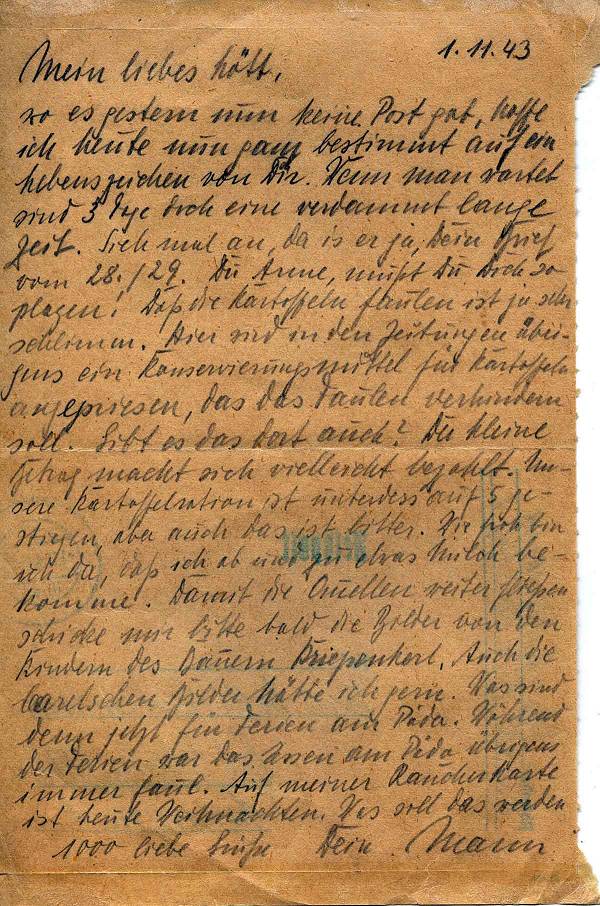 1.11.43
Mein liebes Hött,
wo es gestern nun keine Post gab, hoffe
ich heute nun ganz bestimmt auf ein
Lebenszeichen von Dir. Wenn man wartet
sind 3 Tage doch eine verdammt lange
Zeit. Sieh mal an, da is er ja, Dein Brief
vom 28./29. Du Arme, mußt Du Dich so
plagen! Daß die Kartoffeln faulen ist ja sehr
schlimm. Hier sind in den Zeitungen übri-
gens ein Konservierungsmittel für Kartoffeln
angepriesen, das das Faulen verhindern
soll. Gibt es das dort auch? Der kleine
Betrag macht sich vielleicht bezahlt. Un-
sere Kartoffelration ist unterdess auf 5 ge-
stiegen, aber auch das ist bitter. Wie froh bin
ich da, daß ich ab und zu etwas Milch be-
komme. Damit die Quellen weiter fliessen
schicke mir bitte bald die Bilder von den
Kindern des Bauern Kriepenkerl. Auch die
Bilder hätte ich gern. Was sind
denn jetzt für Ferien am Päda. Während
der Ferien war das Essen am Päda übrigens
immer faul. Auf meiner Raucherkarte
ist heute Weihnachten. Was soll das werden
1000 liebe Grüße Dein Mann